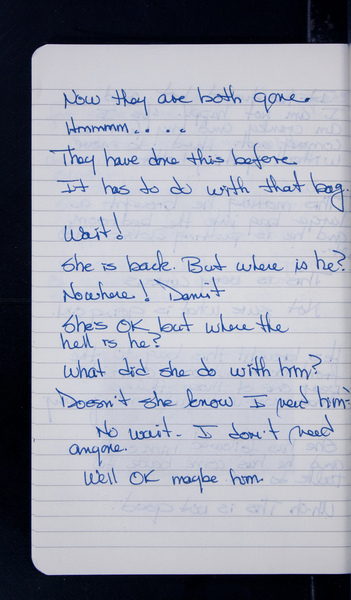 Now they are both gone.
Hmmmm....
They have done this before.
It has to do with that bag.
Wait!
She is back. But where is he?
Nowhere! Damit
She's OK but where the
hell is he?
What did she do with him?
Doesn't she know I need him?
No wait - I don't need
anyone.
Well OK maybe him.